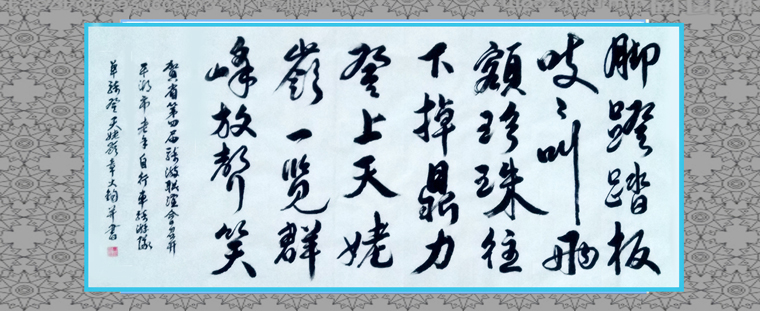 脚蹬踏板
吱〻叫两
额珍珠往
下掉鼎力
登上天姥
岭一览群
峰放声笑
贺省第四届骑游联谊会召开
平湖市老年自行车骑游队
单骑登天姥岭章大钧并书